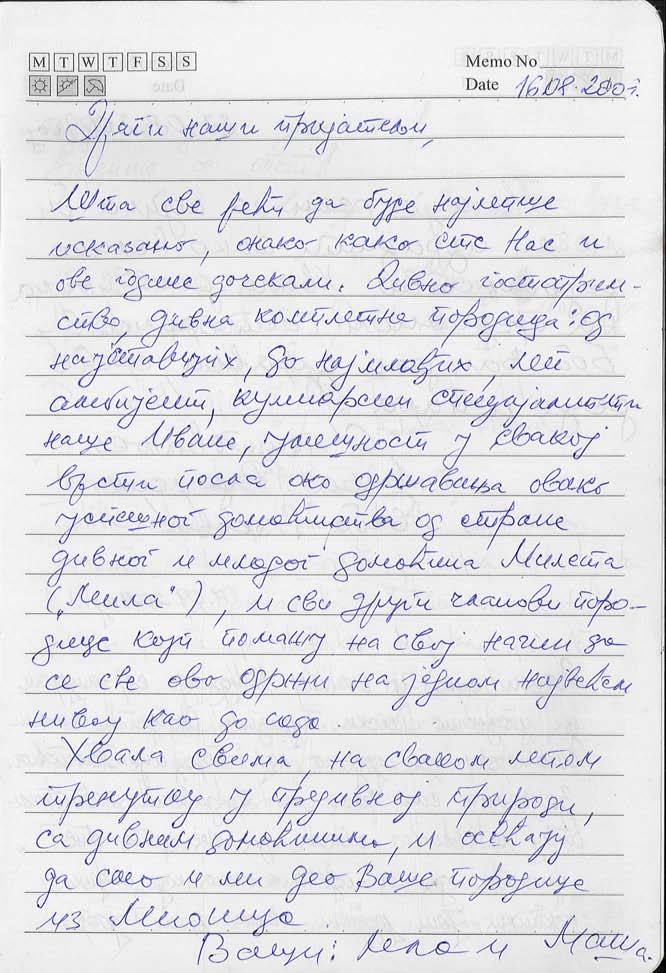 M T W T F S S
Memo No
Date 16.08.200г.
Драги наши пријатељи,
Шта све рећи да буде најлепше
исказано, онако како сте Нас и
ове године дочекали. Дивно гостoприм-
ство, дивна комплетна породица: од
најстаријих, до најмлађих, леп
амбијент, кулинарски специјалитети
наше Иване, умешност у свакој
врсти посла око одржавања овако
успешног домаћинства од стране
дивног и младог домаћина Милета
("Мила"), и сви други чланови поро-
дице који помажу на свој начин да
се све ово одржи на једном највећем
нивоу као до сада.
Хвала свима, на сваком лепом
тренутку у предивној природи,
са дивним домаћинима, и осећају
да смо и ми део Ваше породице
из Мионица.
Ваши: и Маша.